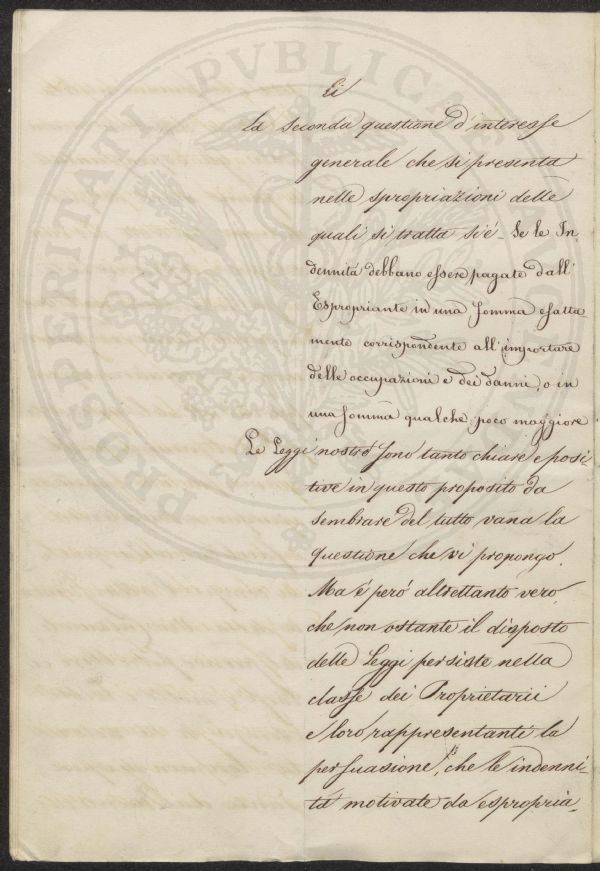 La seconda questione d'interesse
generale che si presenta
nelle spropriazioni delle
quali si tratta si é - Se le In-
dennitá debbano essere pagate dall'
Espropriante in una somma esatta-
mente corrispondente all'importare
delle occupazioni e dei danni, o in
una somma qualche poco maggiore
Le Leggi nostre sono tanto chiare e posi-
tive in questo proposito da
sembrare del tutto vana la
questione che vi propongo.
Ma é peró altrettanto vero,
che non ostante il disposto
delle Leggi persiste nella
classe dei Proprietarii
e loro rappresentanti la
persuasione, che le indenni-
tá motivate da espropria-
PROSPERITATI PVBLICAE